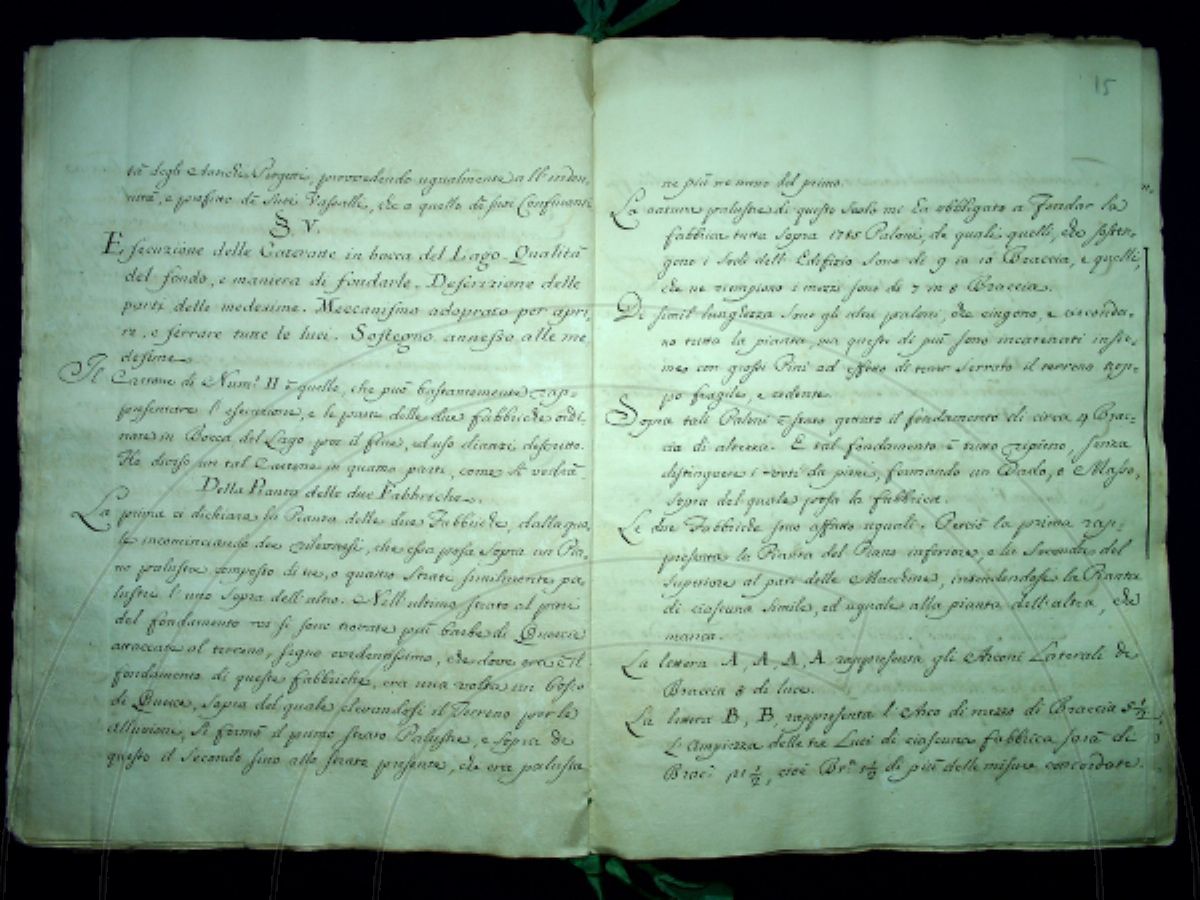 tà degli Antichi Progetti, provvedendo ugualmente all' inden,,
nità, e profitto de Suoi Vassalli, che a quello de suoi Confinanti
§. V.
Esecuzione delle Cateratte in bocca del Lago. Qualità
del fondo, e maniera di fondarle. Descrizione delle
parti delle medesime. Meccanismo adoprato per apri,,
re, e serrare tutte le luci. Sostegno annesso alle me,,
desime.
Il Cartone di Num.º II è quello, che può bastantemente rap,,
presentare l' esecuzione, e le parti delle due fabbriche ordi,,
nate in Bocca del Lago per il fine, ed uso dianzi descritto.
Ho diviso un tal Cartone in quattro parti, come si vedrà
Della Pianta delle due Fabbriche.
La prima ci dichiara la Pianta delle due Fabbriche, dalla qua,,
le incominciando dee rilevarsi, che essa posa sopra un Pia,,
no palustre composto di tre, o quattro strati similmente pa,,
lustri l' uno sopra dell' altro. Nell' ultimo strato al pari
del fondamento vi si sono trovate più barbe di Quercie
attaccate al terreno, segno evidentissimo, che dove ora è il
fondamento di queste fabbriche, era una volta un bosco
di Querce, sopra del quale elevandosi il Terreno per le
alluvioni, si formò il primo strato Palustre, e sopra di
questo il Secondo fino allo strato presente, che era palustre
15
ne più ne meno del primo.
La natura palustre di questo suolo mi ha obbligato a Fondar la
fabbrica tutta sopra 1785 Paloni, de quali quelli, che sosten,,
gono i Sodi dell' Edifizio sono de 9 in 10 Braccia, e quelli,
che ne riempiono i mezzi sono di 7 in 8 Braccia.
Di simil lunghezza sono gli altri paloni, che cingono, e circonda,,
no tutta la pianta, ma questi di più sono incatenati insie,,
me con grossi Pini ad effetto di tener serrato il terreno trop,,
po fragile, e cedente.
Sopra tali Paloni è stato gettato il fondamento di circa 4 Brac,,
cia di altezza. E tal fondamento è tutto ripieno, senza
distinguere i voti da pieni, formando un Dado, o Masso,
sopra del quale posa la fabbrica.
Le due Fabbriche sono affatto uguali. Perciò la prima rap,,
presenta la Pianta del Piano inferiore, e la Seconda del
Superiore al pari delle Macchine, intendendosi la Pianta
di ciascuna simile, ed uguale alla pianta dell' altra, che
manca.
La lettera A, A, A, A rappresenta gli Arconi Laterali de
Braccia 8 di luce.
La lettera B, B, rappresenta l' Arco di mezzo di Braccia 5 1/2
L' Ampiezza delle tre Luci di ciascuna fabbrica sarà di
Brac.ª 21 1/2, cioè Br.ª 1 1/2 di più delle misure concordate.